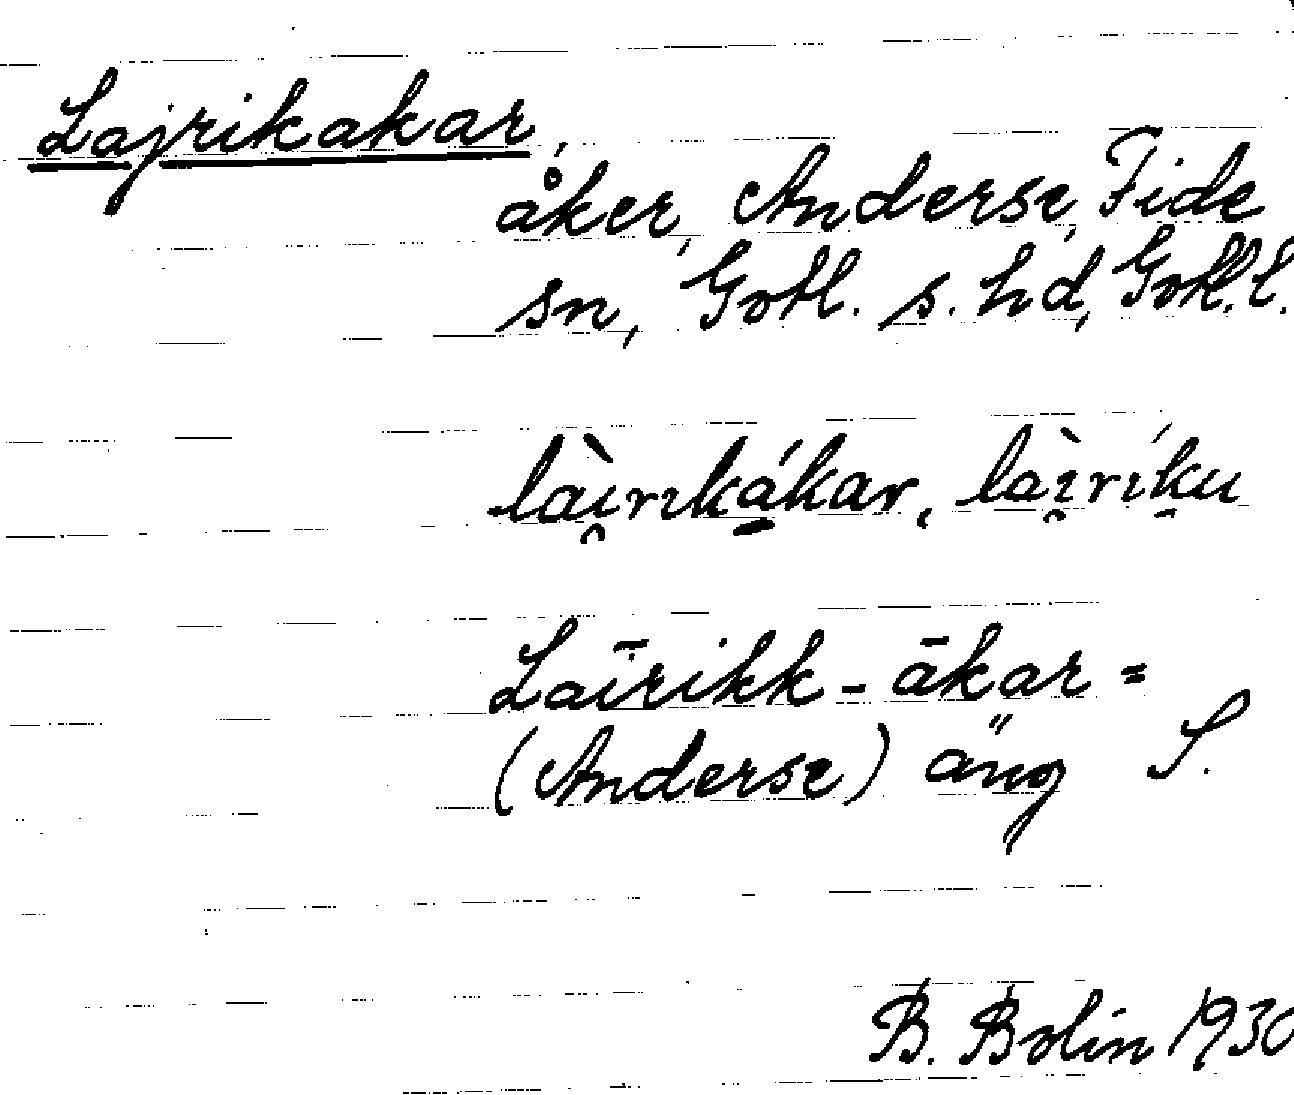 Lajrikakar,
åker, Anderse, Fide
sn, Gotl. s. hd, Gotl. l.
lài̯rıkákar, lài̯ríku
Laīrikk-ākar =
(Anderse) äng S.
B. Bolin 1930